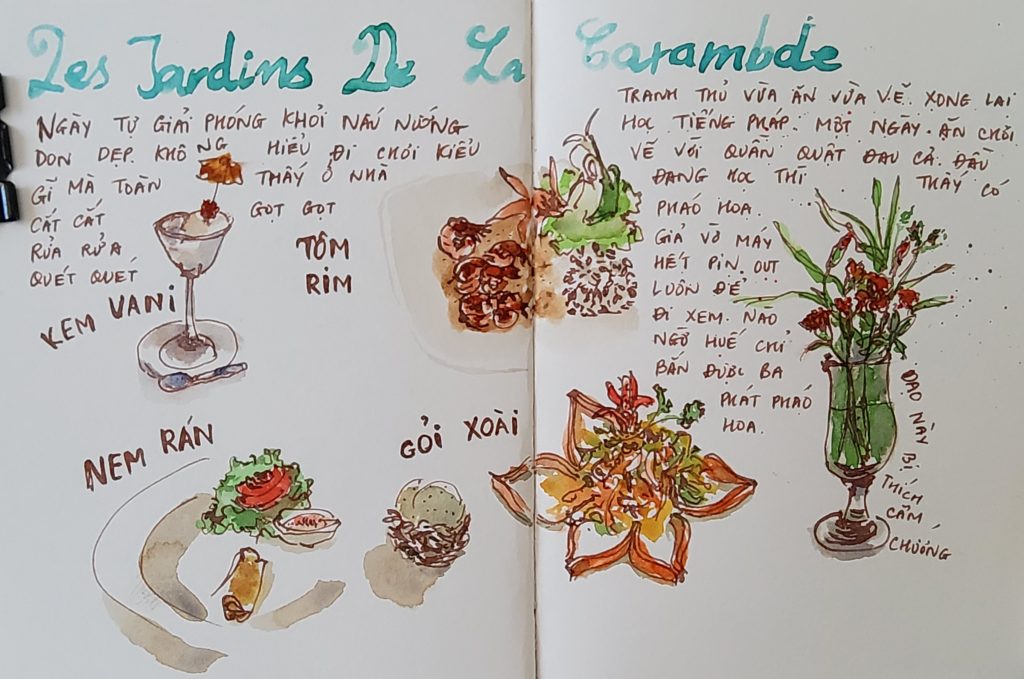 Les Jardins De La Carambole
NGÀY TỰ GIẢI PHÓNG KHỎI NẤU NƯỚNG
DỌN DẸP. KHÔNG HIỂU ĐI CHƠI KIỂU
GÌ MÀ TOÀN THẤY Ở NHÀ
CẮT CẮT GỌT GỌT
RỬA RỬA
QUÉT QUÉT
KEM VANI
TÔM
RIM
NEM RÁN
GỎI XOÀI
TRANH THỦ VỪA ĂN VỪA VẼ. XONG LẠI
HỌC TIẾNG PHÁP. MỘT NGÀY ĂN CHƠI
VẼ VỜI QUẦN QUẬT ĐAU CẢ ĐẦU
ĐANG HỌC THÌ THẤY CÓ
PHÁO HOA.
GIẢ VỜ MÁY
HẾT PIN OUT
LUÔN ĐỂ
ĐI XEM. NÀO
NGỜ HUẾ CHỈ
BẮN ĐƯỢC BA
PHÁT PHÁO
HOA.
DẠO NÀY BỊ THÍCH
CẨM
CHƯỚNG